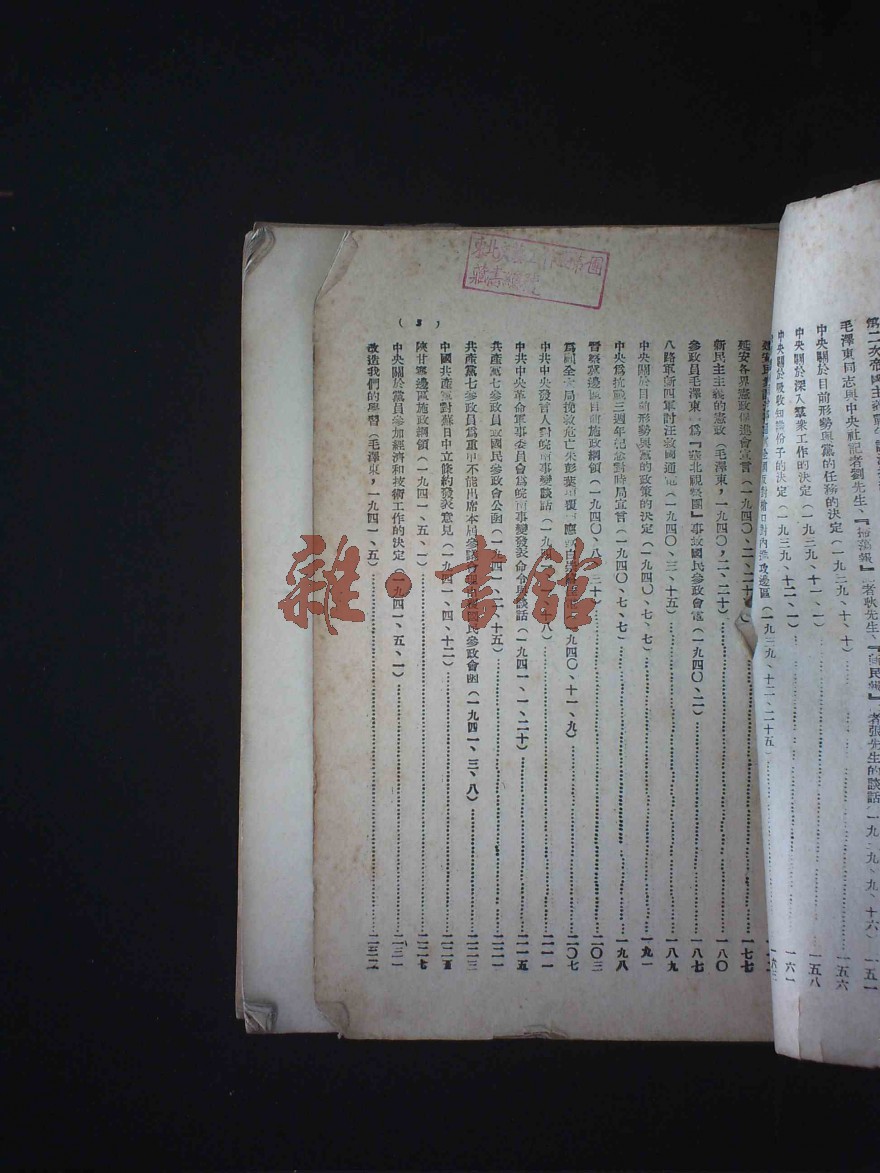 毛澤東同志與中央社記者劉先生、『掃蕩報』記者耿先生、『新民報』記者張先生的談話(一九三九、九、十六)一五一
中央關於目前形勢與黨的任務的決定(一九三九、十、十)一五六
中央關於深入羣衆工作的決定(一九三九、十一、一)一五八
中央關於吸收知識份子的決定(一九三九、十二、一)一六一
(一九三九、十二、二十五)一六三
延安各界憲政促進會宣言(一九四〇、二、二十)一七七
新民主主義的憲政(毛澤東,一九四〇,二、二十)一八〇
參政員毛澤東爲『華北視察團』事致國民參政會電(一九四〇、二)一八七
八路軍新四軍討汪救國通電(一九四〇、三、十五)一八九
中央關於目前形勢與黨的政策的決定(一九四〇、七、七)一九一
中央爲抗戰三週年紀念對時局宣言(一九四〇、七、七)一九八
晉察冀邊區目前施政綱領(一九四〇、八、二十)二〇三
爲顧全大局挽救危亡朱彭葉項覆何應欽白崇禧電(一九四〇、十一、九)二〇七
中共中央發言人對皖南事變談話(一九四一、一、八)二一一
中共中央革命軍事委員會爲皖南事變發表命令與談話(一九四一、一、二十)二一五
共產黨七參政員致國民參政會公函(一九四一、二、十五)二二一
共產黨七參政員爲重申不能出席本屆參議會覆國民參政會函(一九四一、三、八)二二三
中國共產黨對蘇日中立條約發表意見(一九四一、四、十二)二二五
陝甘寧邊區施政綱領(一九四一、五、一)二二七
中央關於黨員參加經濟和技術工作的決定(一九四一、五、一)二三一
改造我們的學習(毛澤東,一九四一、五)二三二
(3)
雜·書館